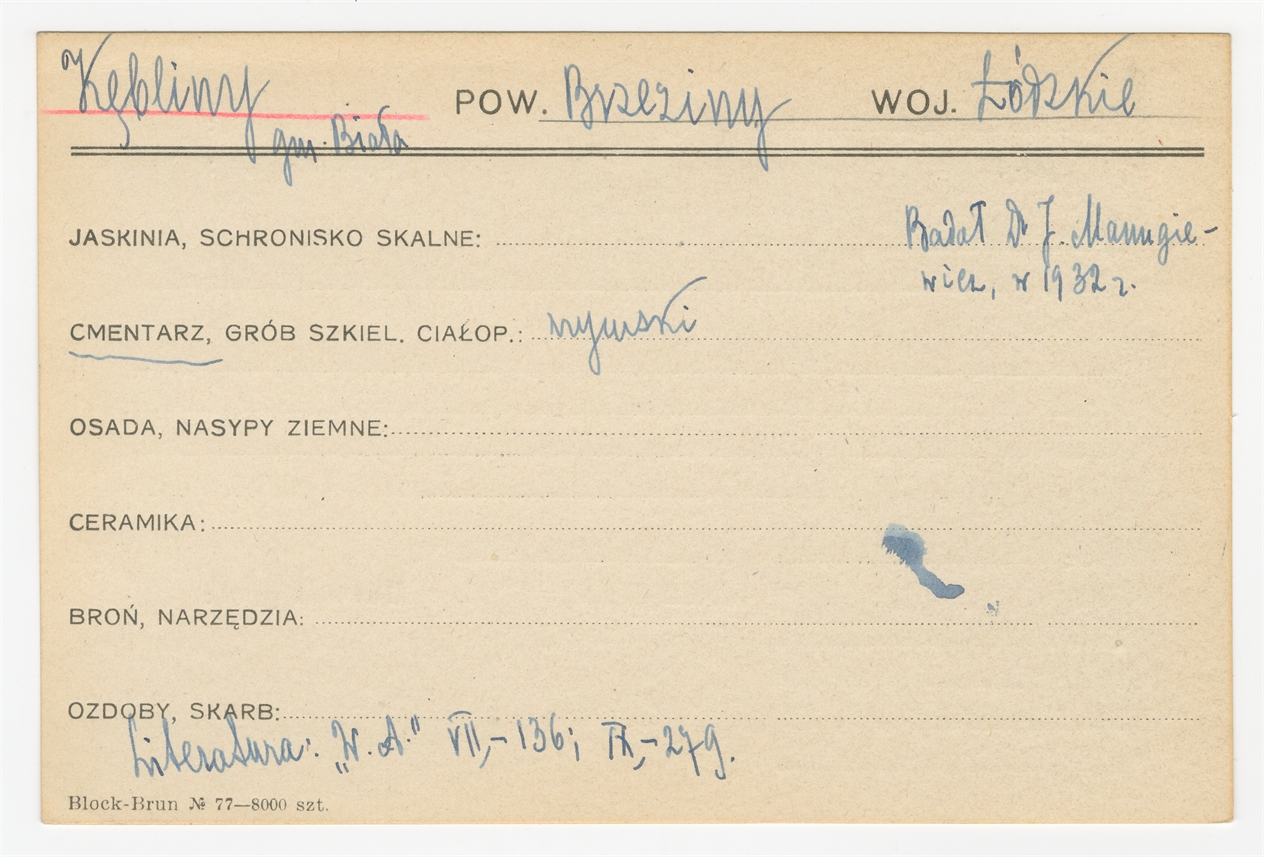 Kębliny POW. Brzeziny WOJ. Łódzkie
gm. Biała
JASKINIA, SCHRONISKO SKALNE: Badał Dr J. Manugie-
wicz, w 1932 r.
CMENTARZ, GRÓB SZKIEL. CIAŁOP.: rzymski
OSADA, NASYPY ZIEMNE:
CERAMIKA:
BROŃ, NARZĘDZIA:
OZDOBY, SKARB:
Literatura: „W. A." VII,-136; IX,-279.
Block-Brun № 77—8000 szt.